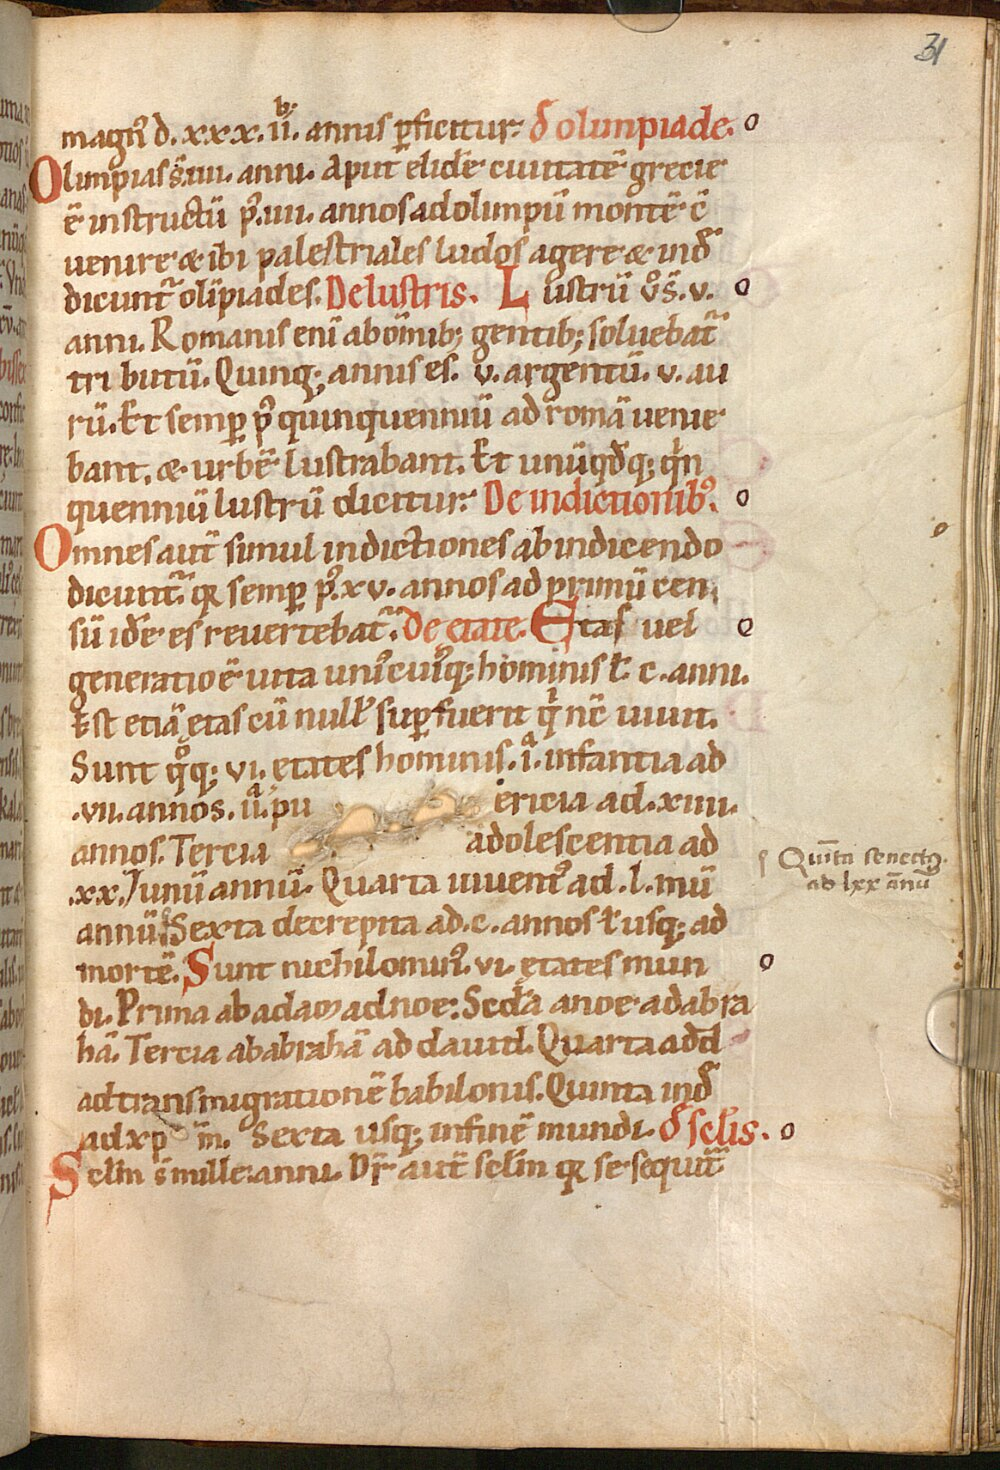 31
magn᾽ d. xxx. ii. annis ꝑficitur. δ olimpiade.
Olimpias s̄. iiii. anni. Aput elide ciuitatē grecie
ē instructū p᾽. iiii. annos ad olimpū montē c̄
uenire & ibi palestriales ludos agere & inđ
dicunt᾽ olīpiades. De lustris. Lustrū u᾽o s̄. v.
anni. Romanis enī ab om̄ib; gentib; soluebat᾽
tributū. Quinq; annis es. v. argentū. v. au
rū. Et semꝑ p᾽ quinquenniū ad romā uenie
bant. & urbē lustrabant. Et unūqđq; qⁱn
quenniū lustrū dicitur. De indictionib᾽.
Omnes aut̄ simul indictiones ab indicendo
dicunt᾽. qr semꝑ p᾽. xv. annos ad primū cen
sū iđe es reuertebat᾽. De etate. Etas uel
generatio ē uita uni᾽cui᾽q; hominis ł. c. anni.
Est etiā ętas cū null᾽ suꝑfuerit qⁱ nc̄ uiuit.
Sunt qᵒq; vi. ętates hominis. iᵃ. infantia ad
.vii. annos. iiᵃ. pu ericia ad. xiiii.
annos. Tercia adolescentia ad
.xx.viiiiū annū. Quarta iuuent᾽ ad. l. mū
annū. Sexta decrepita ad. c. annos ł usq; ad
mortē. Sunt nichilomin᾽. vi. ętates mun
di. Prima ab adam ad noe. Scđa a noe ad abra
hā. Tercia ab abrahā ad dauid. Quarta a đđ
ad transmigrationē babilonis. Quinta inđ
ad xp m̄. Sexta usq; in finē mundi. δ sclis.
Sclm s̄ mille anni. Dr᾽ aut̄ sclm qr se sequit᾽
Quīta senect᾽
ad lxx ānū